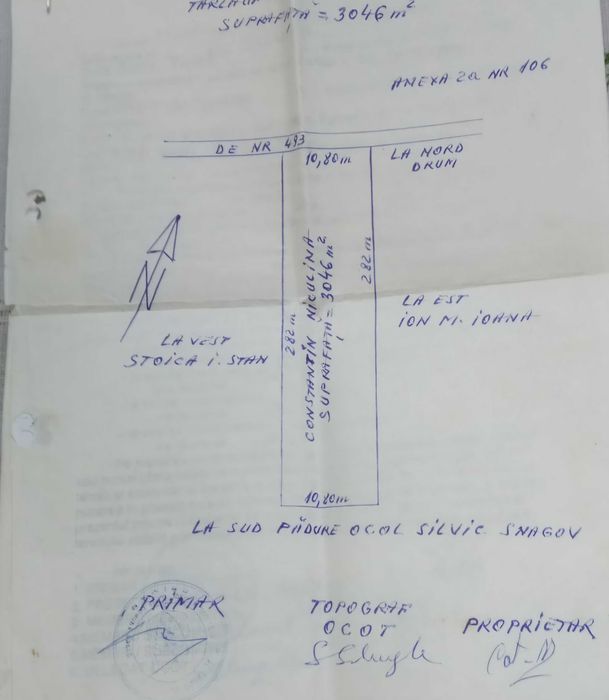 SUPRAFAȚĂ = 3046 m²
ANEXA 2a NR 106
DE NR 493
10,80m
LA NORD
DRUM
N
282 m
CONSTANTIN NICULINA
SUPRAFAȚĂ = 3046 m²
282 m
LA EST
ION M. IOANA
LA VEST
STOICA I. STAN
10,80m
LA SUD PĂDURE OCOL SILVIC SNAGOV
PRIMAR
TOPOGRAF
OCOT
PROPRIETAR